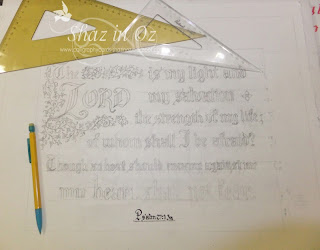 Shaz in Oz
The LORD is my light and
my salvation
the strength of my life;
of whom shall I be afraid?
Though an host should encamp against me
my heart shall not fear.
Psalm 27:1,3a